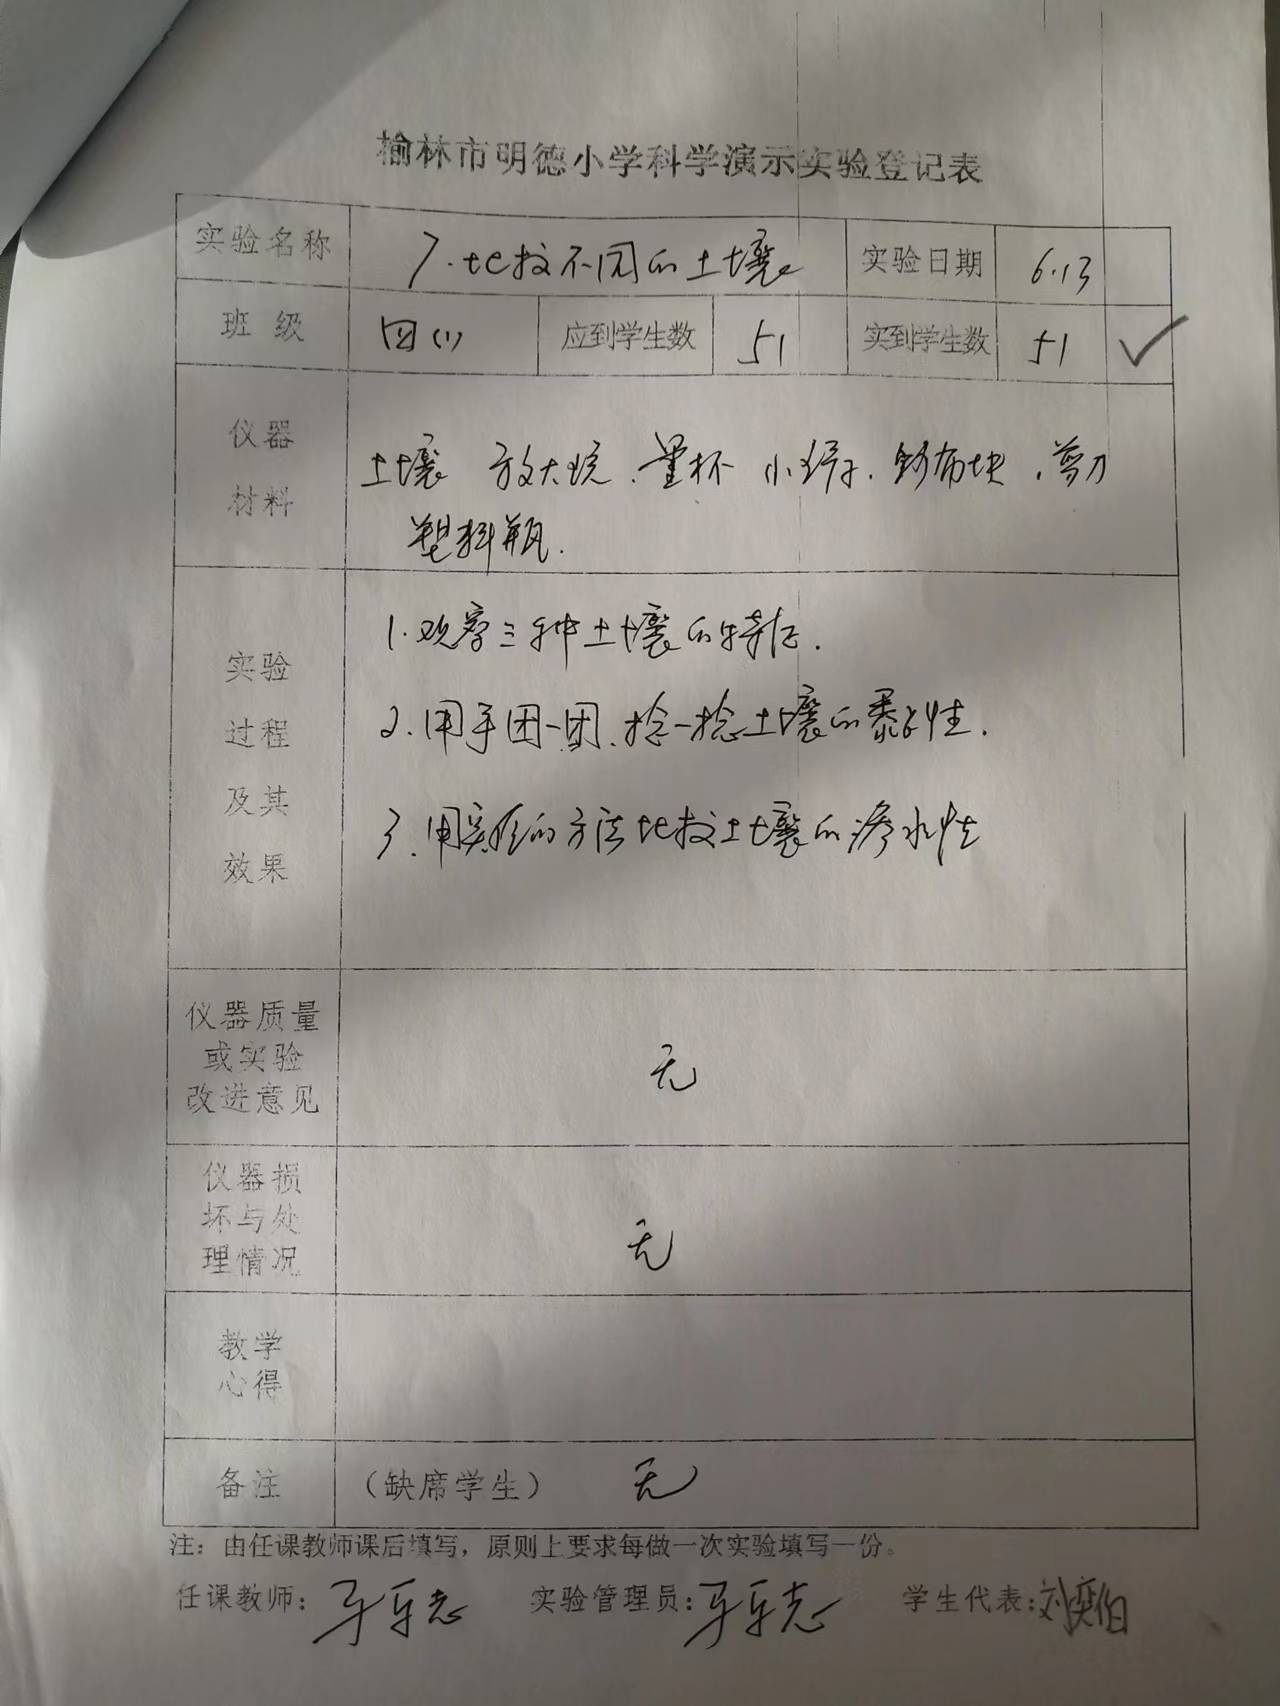 榆林市明德小学科学演示实验登记表
实验名称 7.比较不同的土壤 实验日期 6.13
班级 四(1) 应到学生数 51 实到学生数 51 ✓
仪器
材料
土壤 放大镜、量杯 小铲子、纱布块、剪刀
塑料瓶.
实验
过程
及其
效果
1.观察三种土壤的特征.
2.用手团一团、捻一捻土壤的黏性.
3.用实验的方法比较土壤的渗水性
仪器质量
或实验
改进意见
无
仪器损
坏与处
理情况
无
教学
心得
备注 （缺席学生） 无
注：由任课教师课后填写，原则上要求每做一次实验填写一份。
任课教师： 实验管理员： 学生代表：刘奕伯